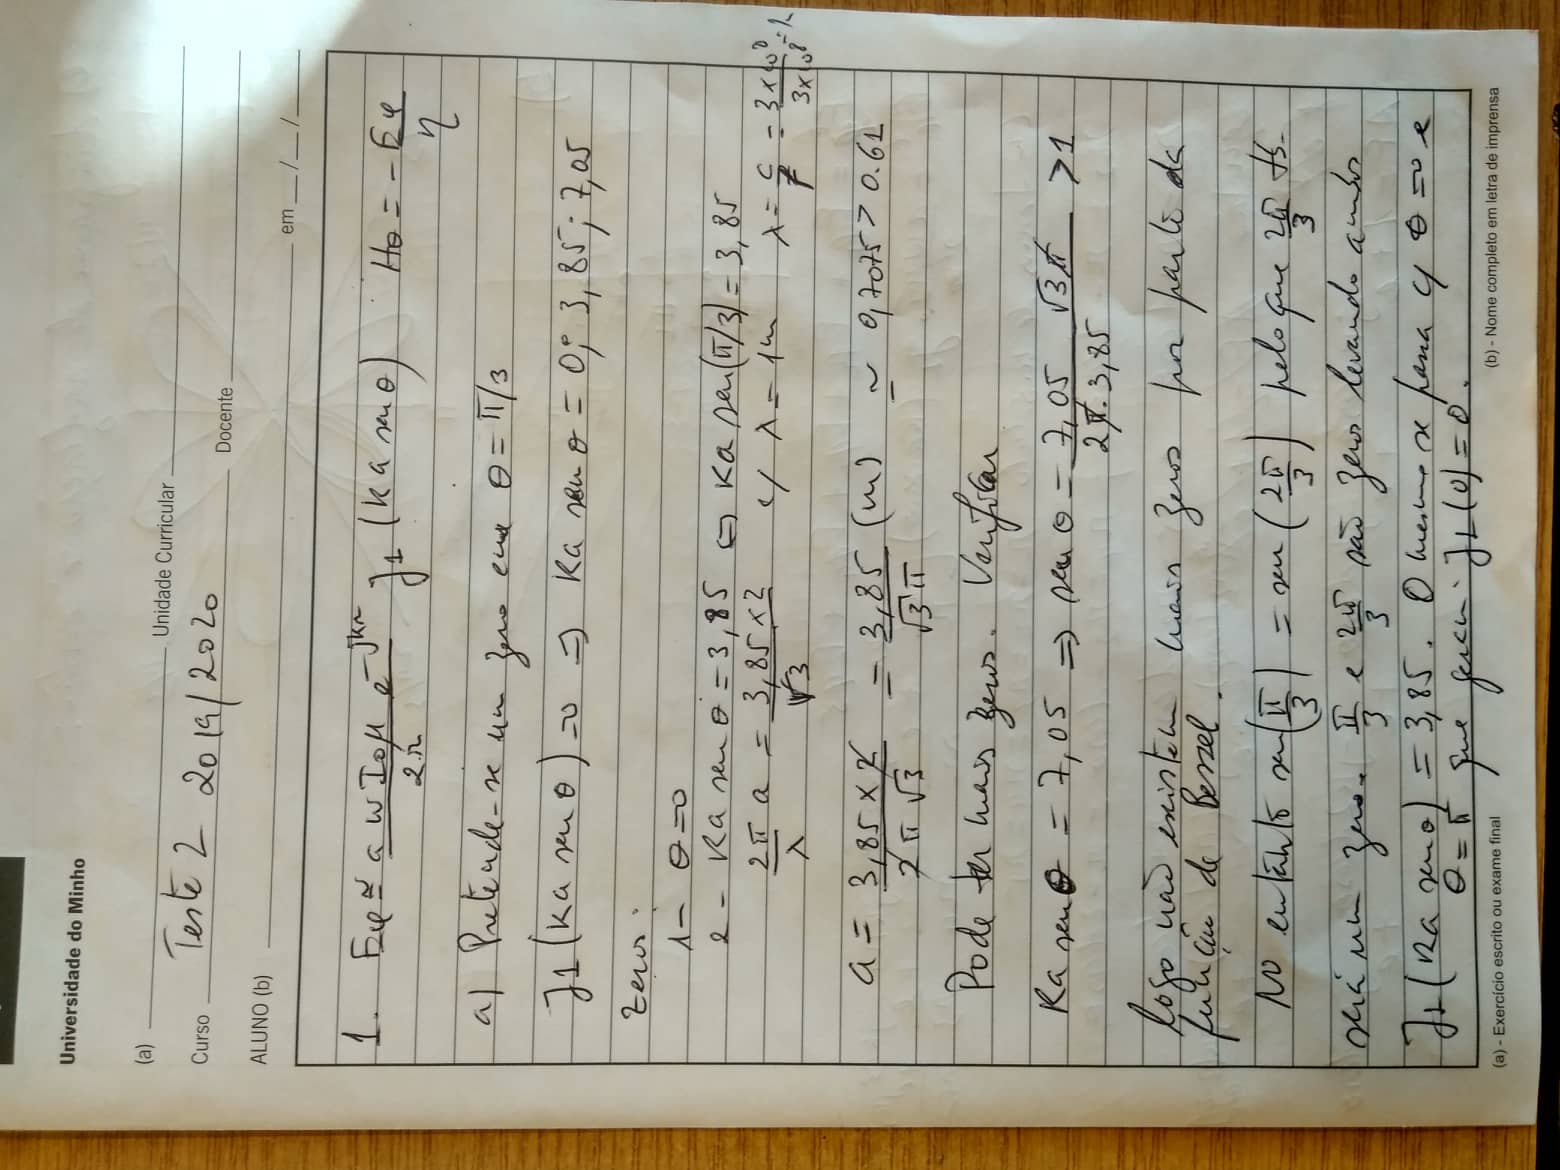 Universidade do Minho
(a) Unidade Curricular
Curso Teste 2 2019/2020 Docente
ALUNO (b) em / /
1. Eφ ≃ a w I₀ μ e^-jkr / 2r J1 (ka sen θ) . Hθ = - Eφ / η
a) Pretende-se um zero em θ = π/3
J1 (ka sen θ) = 0 ⇒ ka sen θ = 0; 3,85; 7,05
Zeros:
1- θ=0
2- Ka sen θ = 3,85 ⇔ ka sen(π/3) = 3,85
2π/λ a = 3,85 x 2 / √3 c/ λ = 1m λ = c/f = 3x10⁸ / 3x10⁸ = 1
a = 3,85 x 2 / 2 π √3 = 3,85 / √3 π (m) ~ 0,7075 > 0.61
Pode ter mais zeros. Verificar
Ka sen θ = 7,05 ⇒ sen θ = 7,05 √3 π / 2π. 3,85 > 1
Logo não existem mais zeros por parte da
função de Bessel.
No entanto sen(π/3) = sen(2π/3) pelo que 2π/3 tb.
será um zero. π/3 e 2π/3 são zeros levando ambos
J1 (Ka sen θ) = 3,85. O mesmo se passa c/ θ=0 e
θ = π que geram J1(0) = 0.
(a) - Exercício escrito ou exame final (b) - Nome completo em letra de imprensa